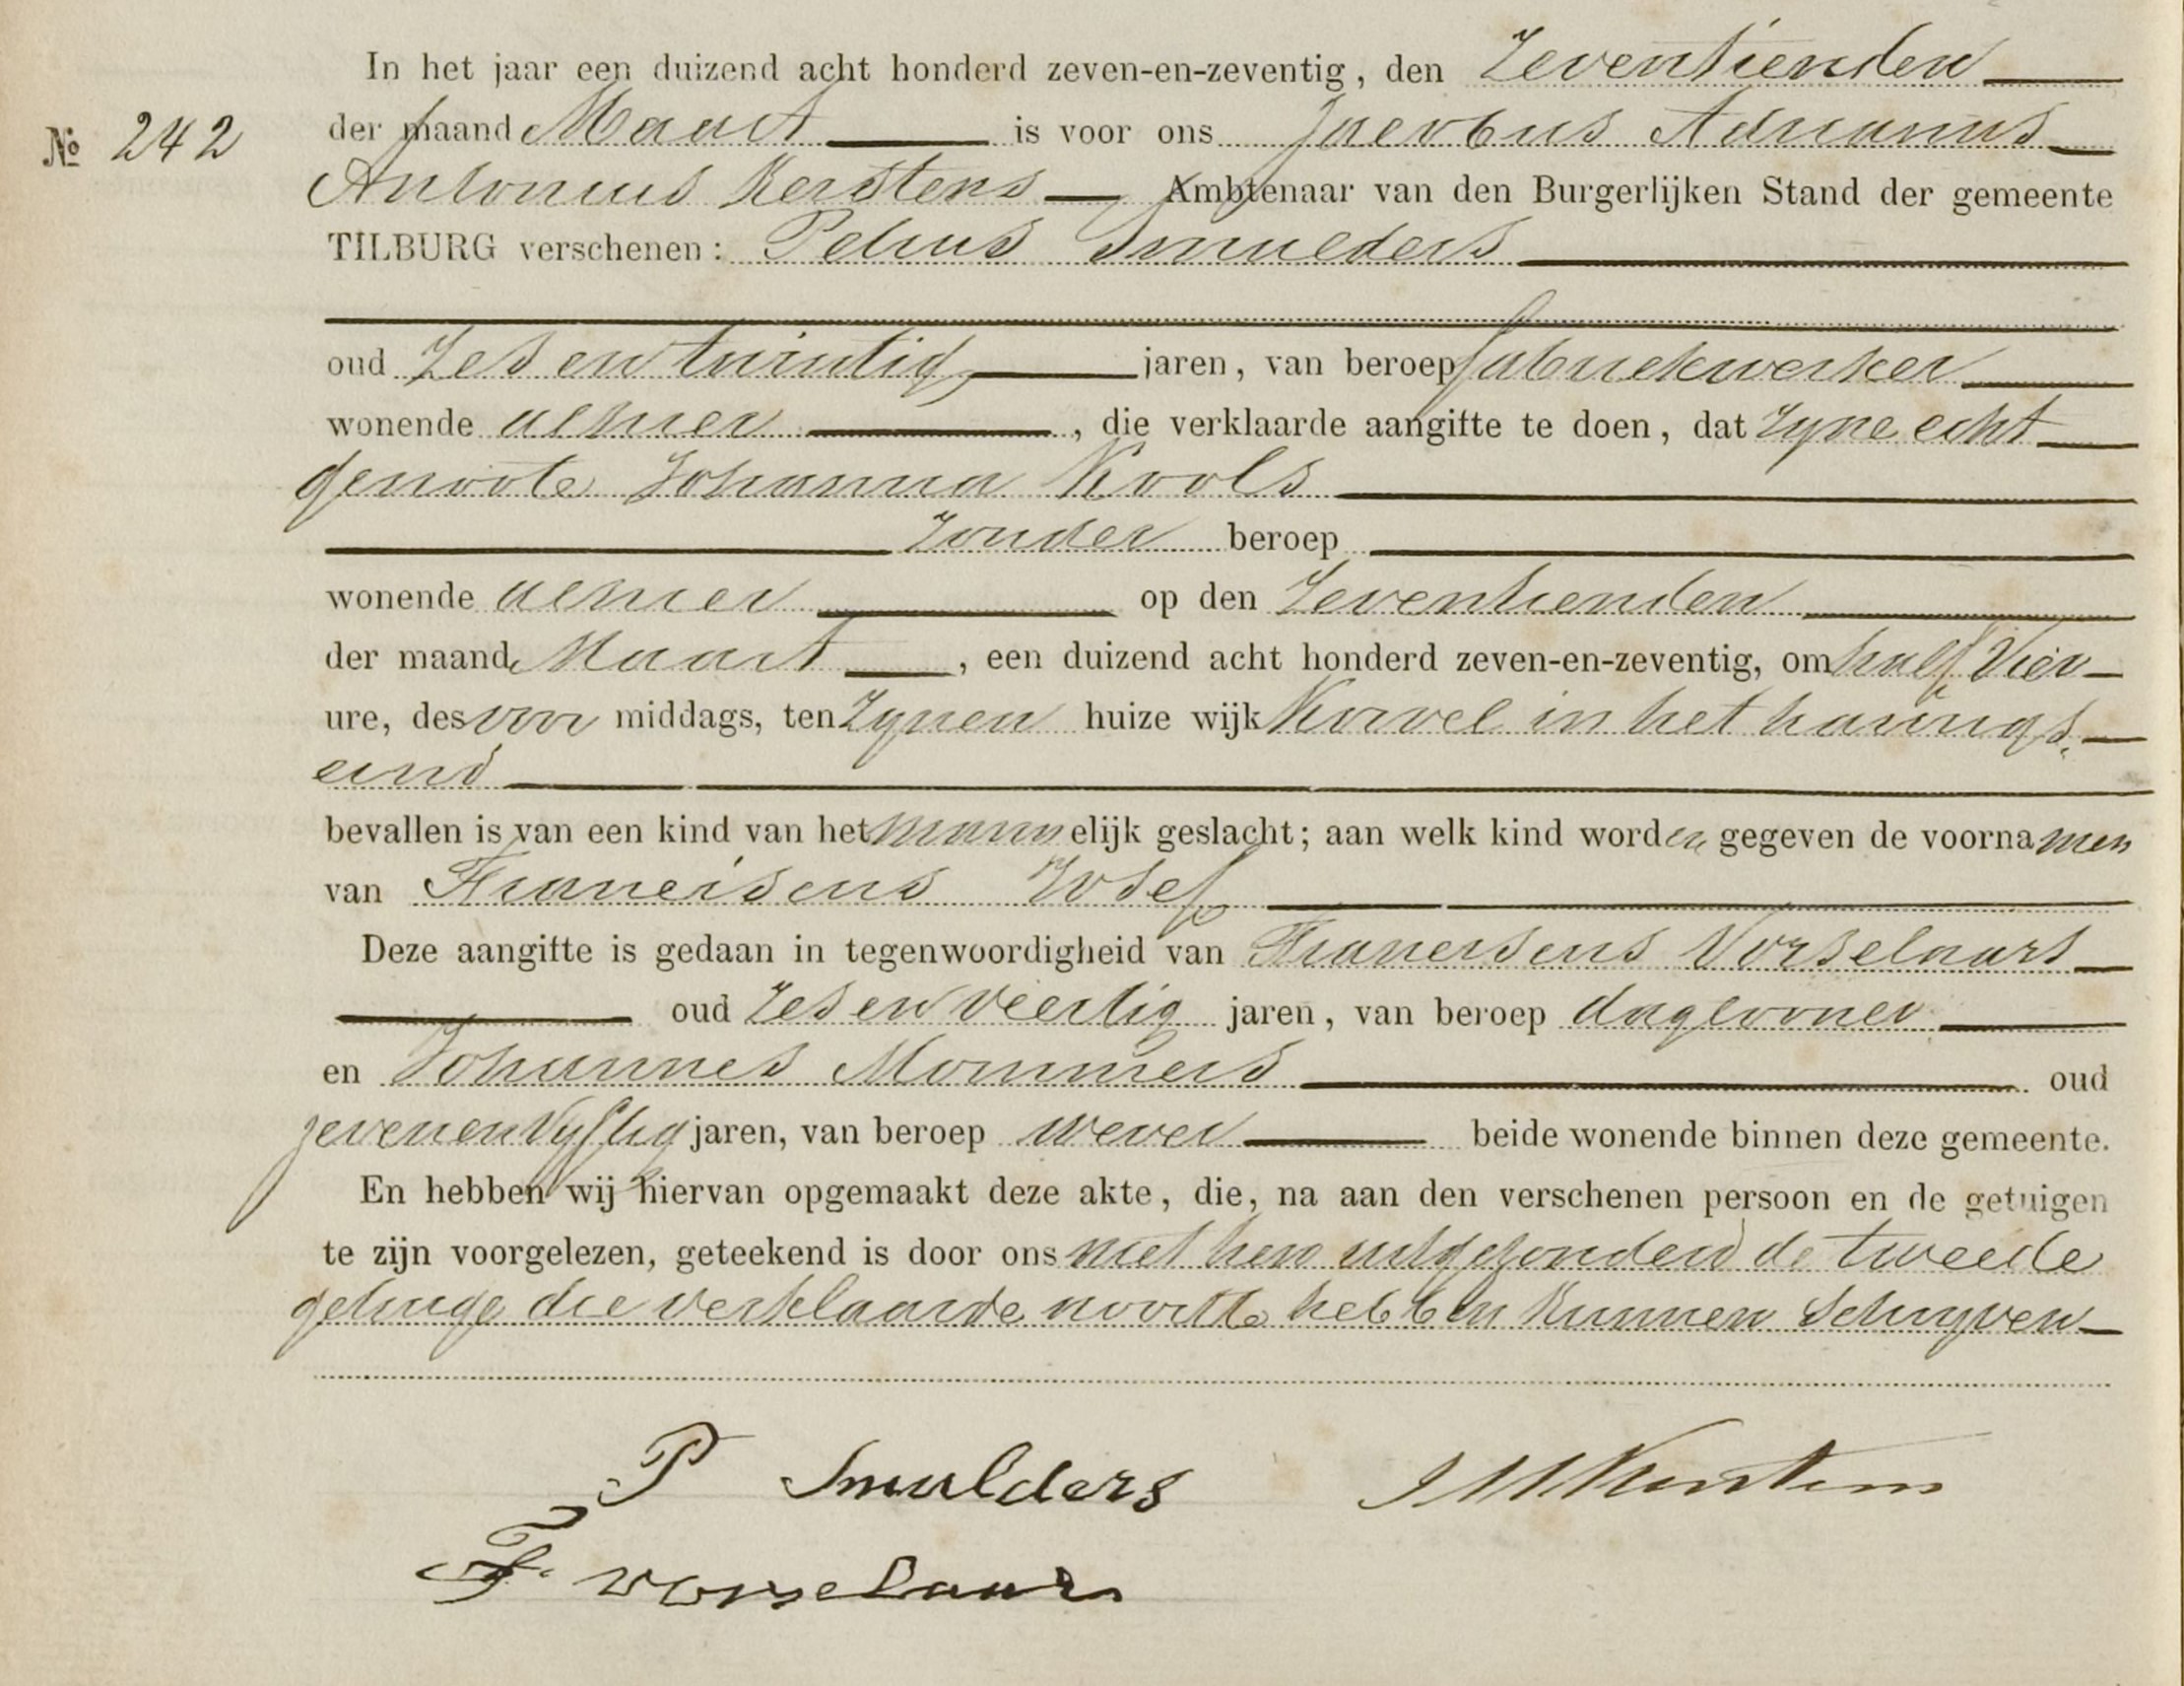 In het jaar een duizend acht honderd zeven-en-zeventig, den Zeventienden
№ 242 der maand Maart is voor ons Jacobus Adrianus
Antonius Kerstens Ambtenaar van den Burgerlijken Stand der gemeente
TILBURG verschenen: Petrus Smulders
oud Zes en twintig jaren, van beroep fabriekwerker
wonende alhier, die verklaarde aangifte te doen, dat Zyne echt
genoote Johanna Kools
Zonder beroep
wonende alhier op den Zeventienden
der maand Maart, een duizend acht honderd zeven-en-zeventig, om half Vier
ure, des voor middags, ten Zynen huize wijk Korvel in het
eind
bevallen is van een kind van het mannelijk geslacht; aan welk kind worden gegeven de voornamen
van Franciscus Josef
Deze aangifte is gedaan in tegenwoordigheid van Franciscus Vorselaars
oud Zes en veertig jaren, van beroep daglooner
en Johannes Mommers oud
zevenen Vyftig jaren, van beroep wever beide wonende binnen deze gemeente.
En hebben wij hiervan opgemaakt deze akte, die, na aan den verschenen persoon en de getuigen
te zijn voorgelezen, geteekend is door ons met hen uitgezonderd de tweede
getuige die verklaarde nooit te hebben kunnen Schryven
P Smulders
F. vorselaars